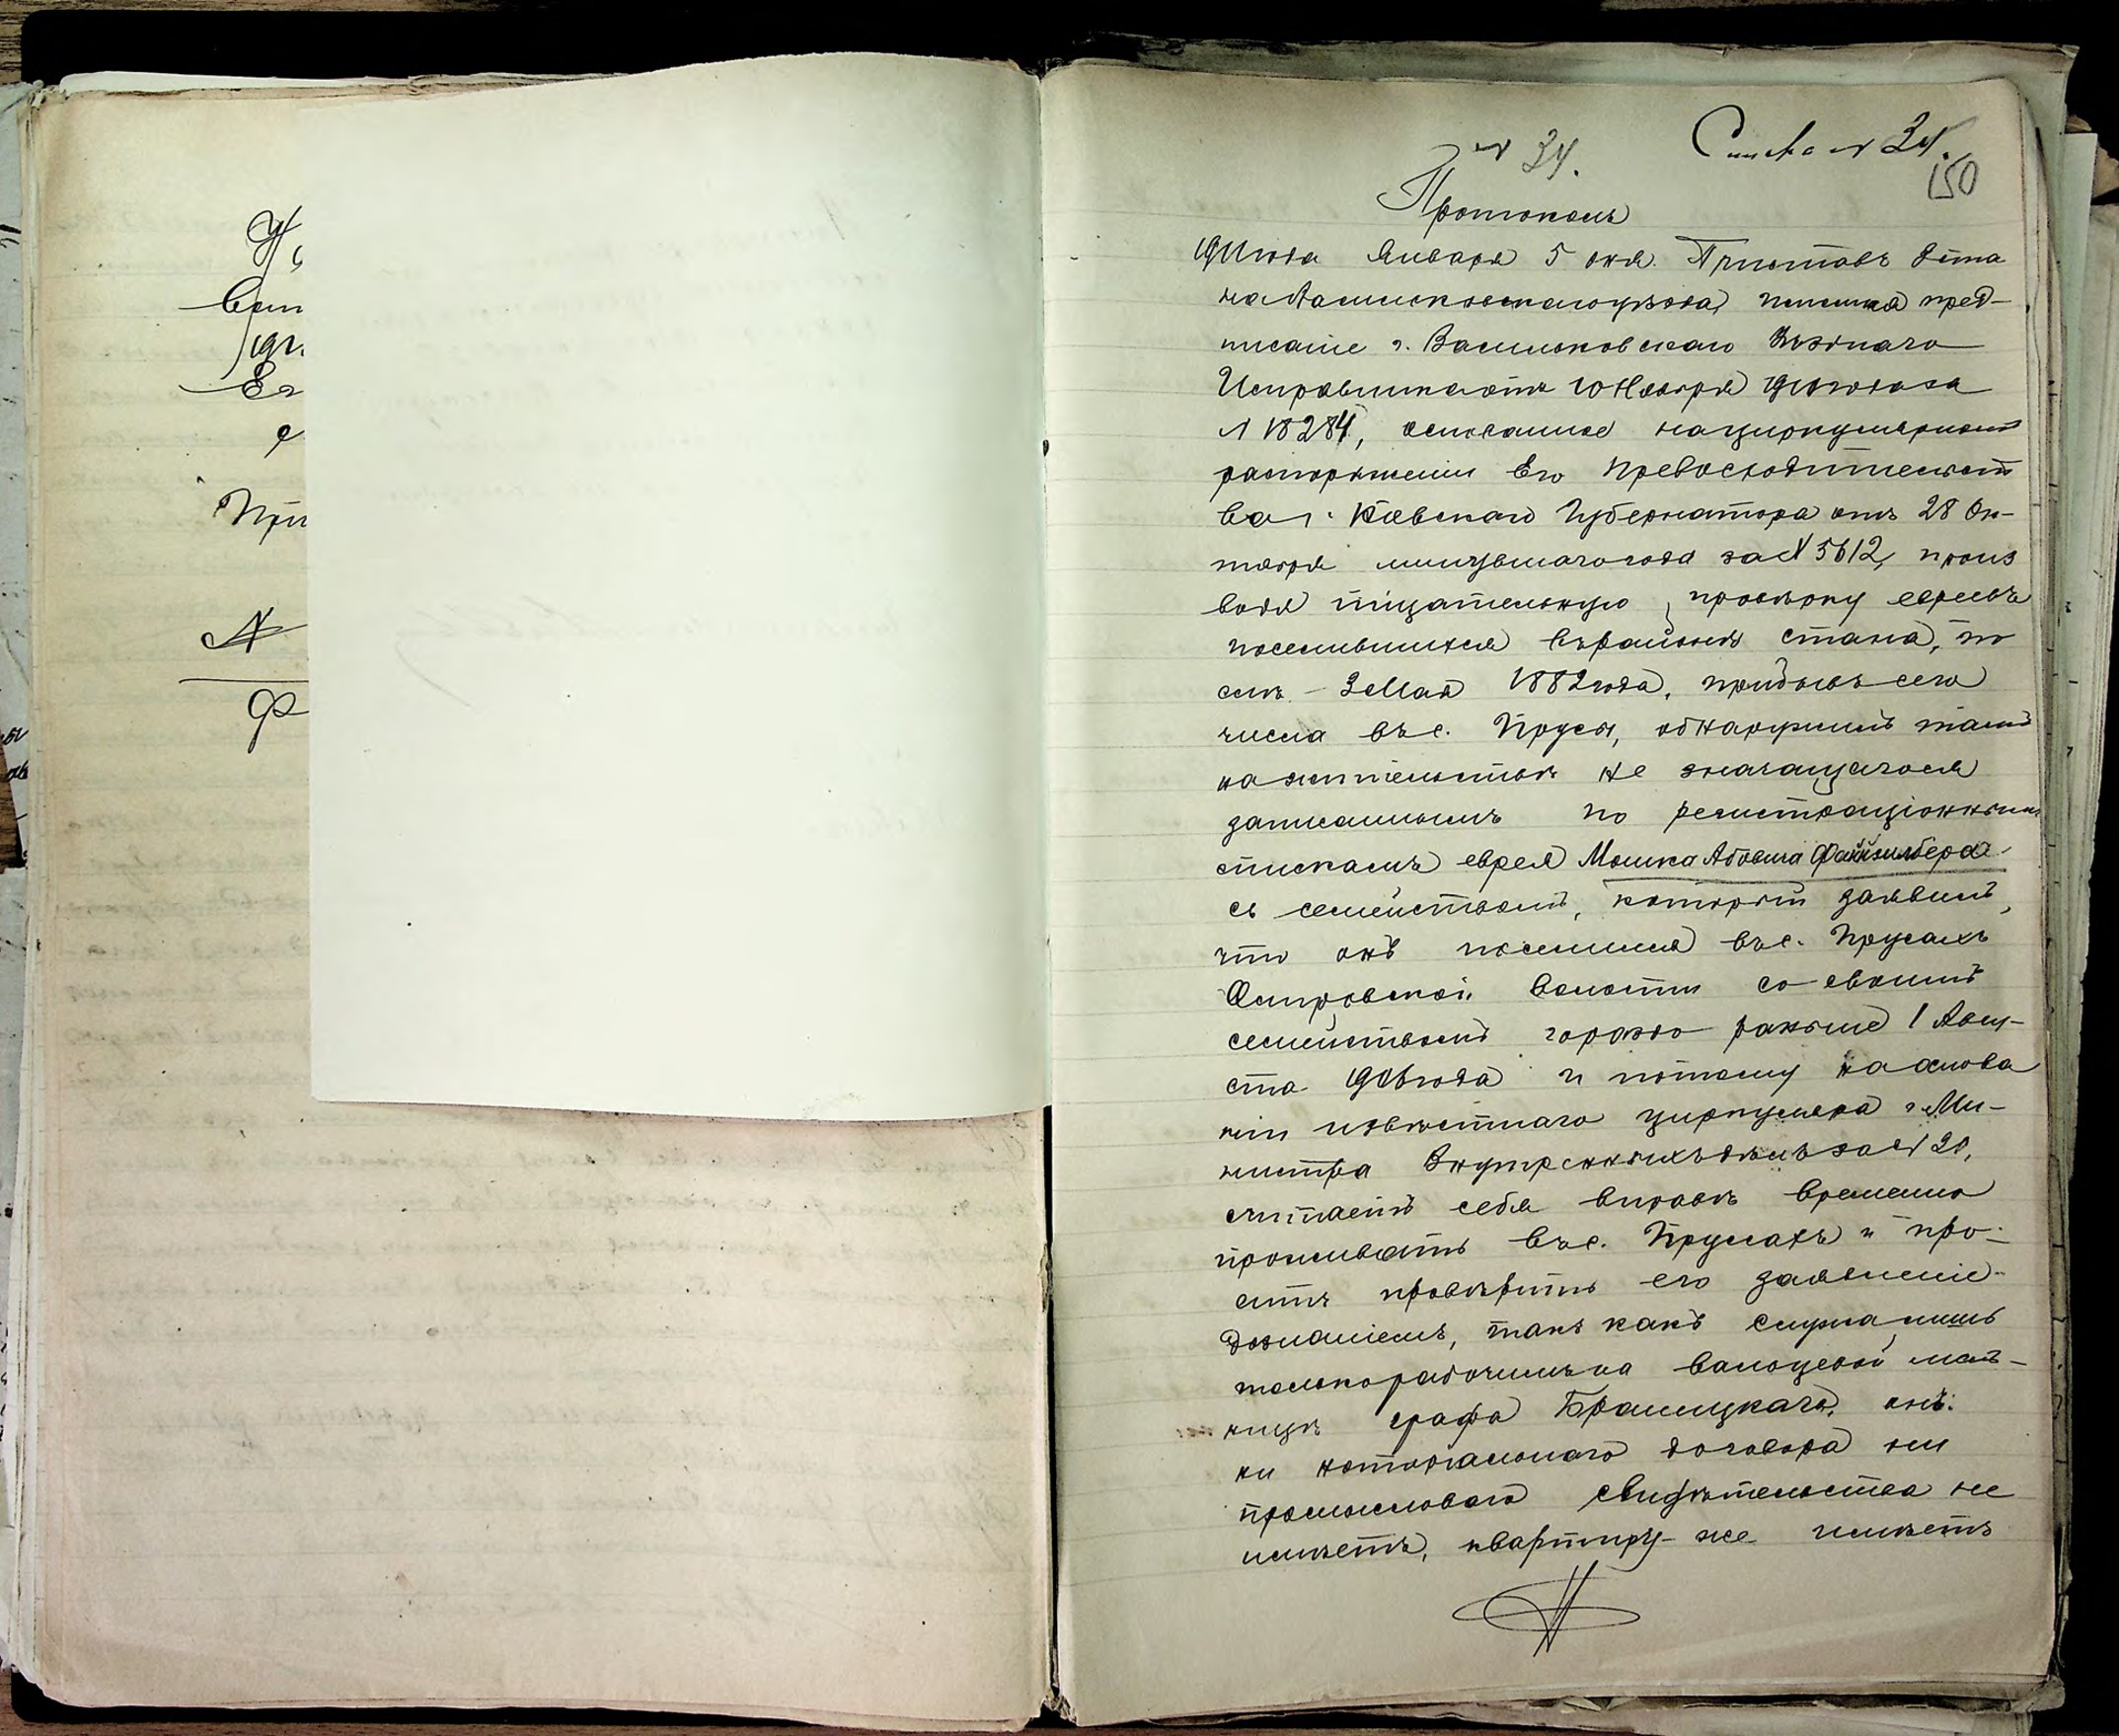 № 34.
Списка № 34.
150
Протоколъ
1911 года Января 5 дня. Приставъ 2 ста
на Васильковскаго уѣзда, пред-
писаніе г. Васильковскаго Уѣзднаго
Исправника отъ 10 Ноября 1910 года за
№ 18284, основанное на циркулярномъ
распоряженіи Его Превосходительст
ва г. Кіевскаго Губернатора отъ 28 Ок-
тября минувшаго года за № 5612, произ
водя тщательную провѣрку евреевъ
поселившихся въ районѣ стана, по
слѣ 3 Мая 1882 года, прибывъ сего
числа въ с. Прусы, обнаружилъ тамъ
на жительствѣ не значащагося
записаннымъ по регистраціоннымъ
спискамъ еврея Мошка Абовича Файнзилберга
съ семействомъ, который заявилъ,
что онъ поселился въ с. Прусахъ
Островской волости со своимъ
семействомъ гораздо раньше 1 Авгу-
ста 1906 года и потому на основа
ніи извѣстнаго циркуляра г. Ми-
нистра Внутреннихъ дѣлъ за № 20,
считаетъ себя вправѣ временно
проживать въ с. Прусахъ и про-
ситъ провѣрить его заявленіе
дознаніемъ, такъ какъ служа лишь
только рабочимъ на вальцевой мель-
ницѣ графа Браницкаго, онъ
ни нотаріальнаго договора ни
промысловаго свидѣтельства не
имѣетъ, квартиру-же имѣетъ